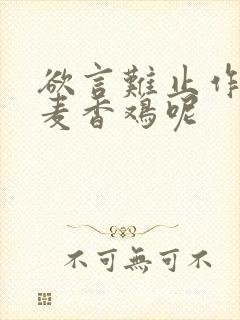 欲言難止作
麦香鸡呢
不可無可不